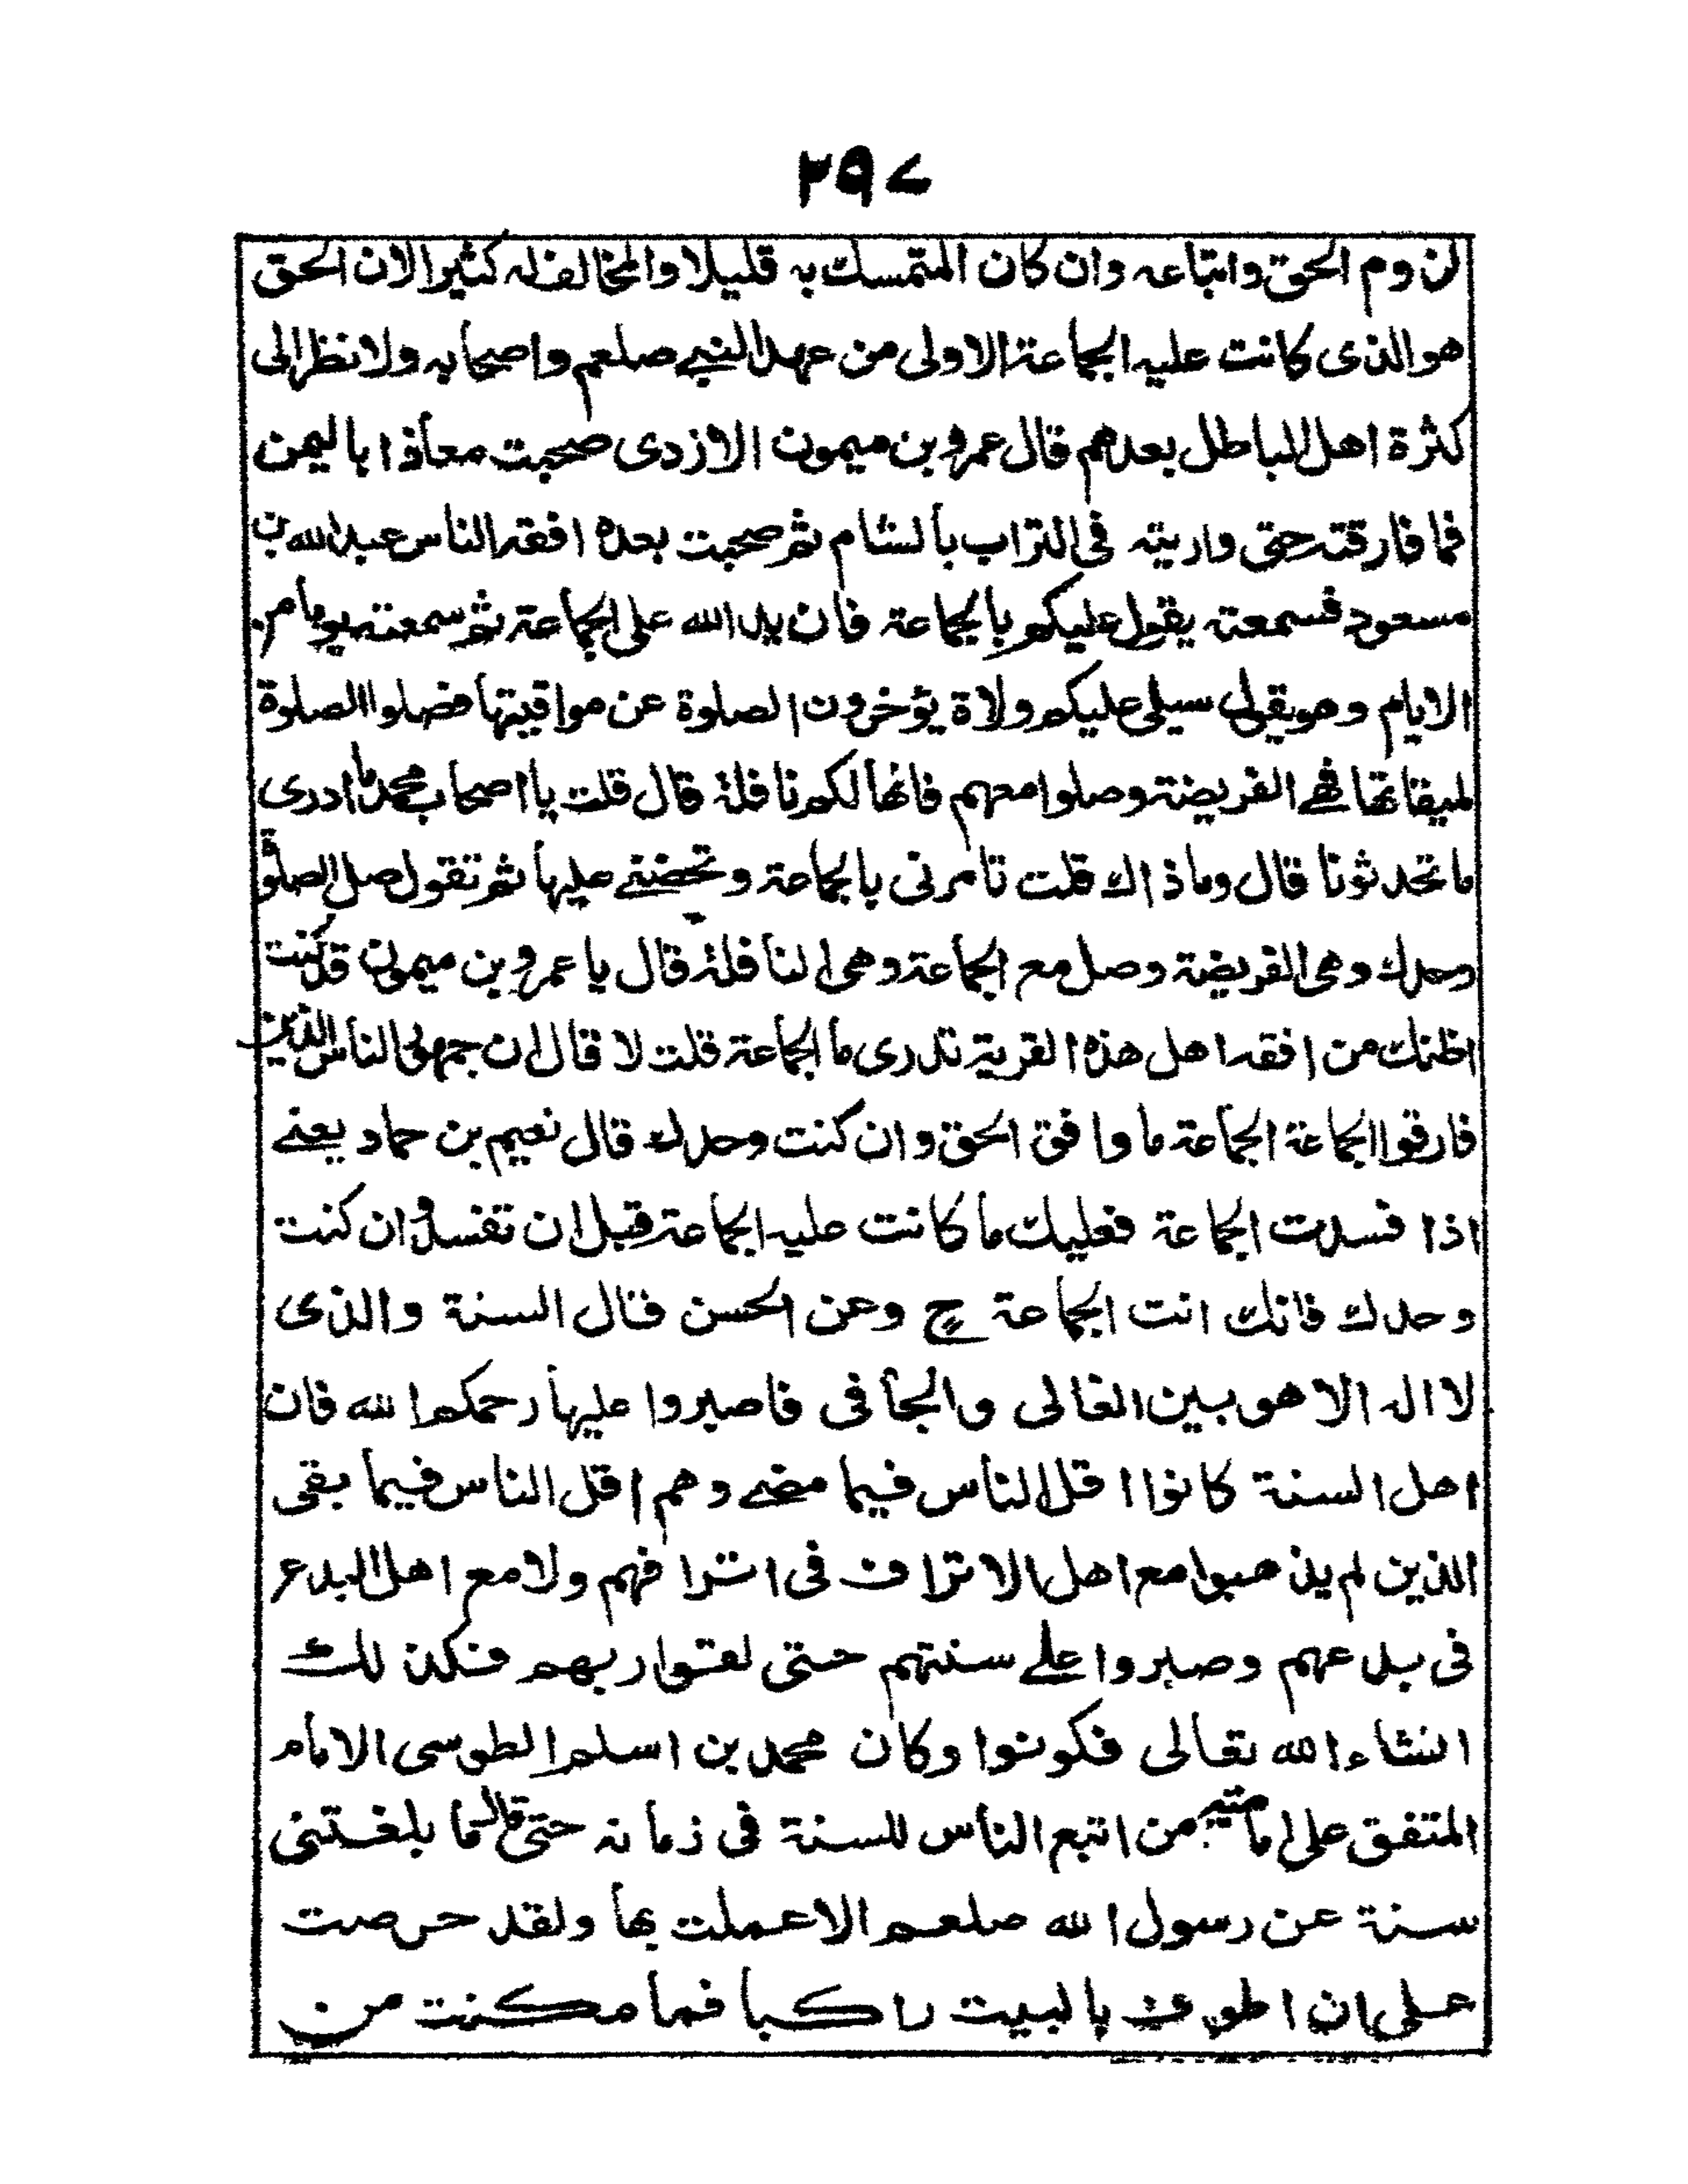 ٢٩٧
لزوم الحق واتباعه وان كان المتمسك به قليلا والمخالف له كثيرا لان الحق
هو الذى كانت عليه الجماعة الاولى من عهد النبي صلعم واصحابه ولا نظر الى
كثرة اهل الباطل بعدهم قال عمرو بن ميمون الازدى صحبت معاذا باليمن
فما فارقته حتى واريته فى التراب بالشام ثم صحبت بعده افقه الناس عبد الله بن
مسعود فسمعته يقول عليكم بالجماعة فان يد الله على الجماعة ثم سمعته يوما من
الايام وهو يقول سيلى عليكم ولاة يؤخرون الصلوة عن مواقيتها فصلوا الصلوة
لميقاتها فهي الفريضة وصلوا معهم فانها لكم نافلة قال قلت يا اصحاب محمد ما ادرى
ما تحدثونا قال وما ذاك قلت تامرنى بالجماعة وتحضني عليها ثم تقول صل الصلوة
وحدك وهى الفريضة وصل مع الجماعة وهى النافلة قال يا عمرو بن ميمون قد كنت
اظنك من افقه اهل هذه القرية تدرى ما الجماعة قلت لا قال ان جمهور الناس الذين
فارقوا الجماعة الجماعة ما وافق الحق وان كنت وحدك قال نعيم بن حماد يعني
اذا فسدت الجماعة فعليك ما كانت عليه الجماعة قبل ان تفسد وان كنت
وحدك فانك انت الجماعة ح وعن الحسن قال السنة والذى
لا اله الا هو بين الغالى والجافى فاصبروا عليها رحمكم الله فان
اهل السنة كانوا اقل الناس فيما مضے وهم اقل الناس فيما بقى
الذين لم يذهبوا مع اهل الاتراف فى اترافهم ولا مع اهل البدع
فى بدعهم وصبروا علے سنتهم حتى لقوا ربهم فكذلك
انشاء الله تعالى فكونوا وكان محمد بن اسلم الطوسى الامام
المتفق على امامته من اتبع الناس للسنة فى زمانه حتى قال ما بلغتنى
سنة عن رسول الله صلعم الا عملت بها ولقد حرصت
على ان اطوف بالبيت راكبا فما مكنت من